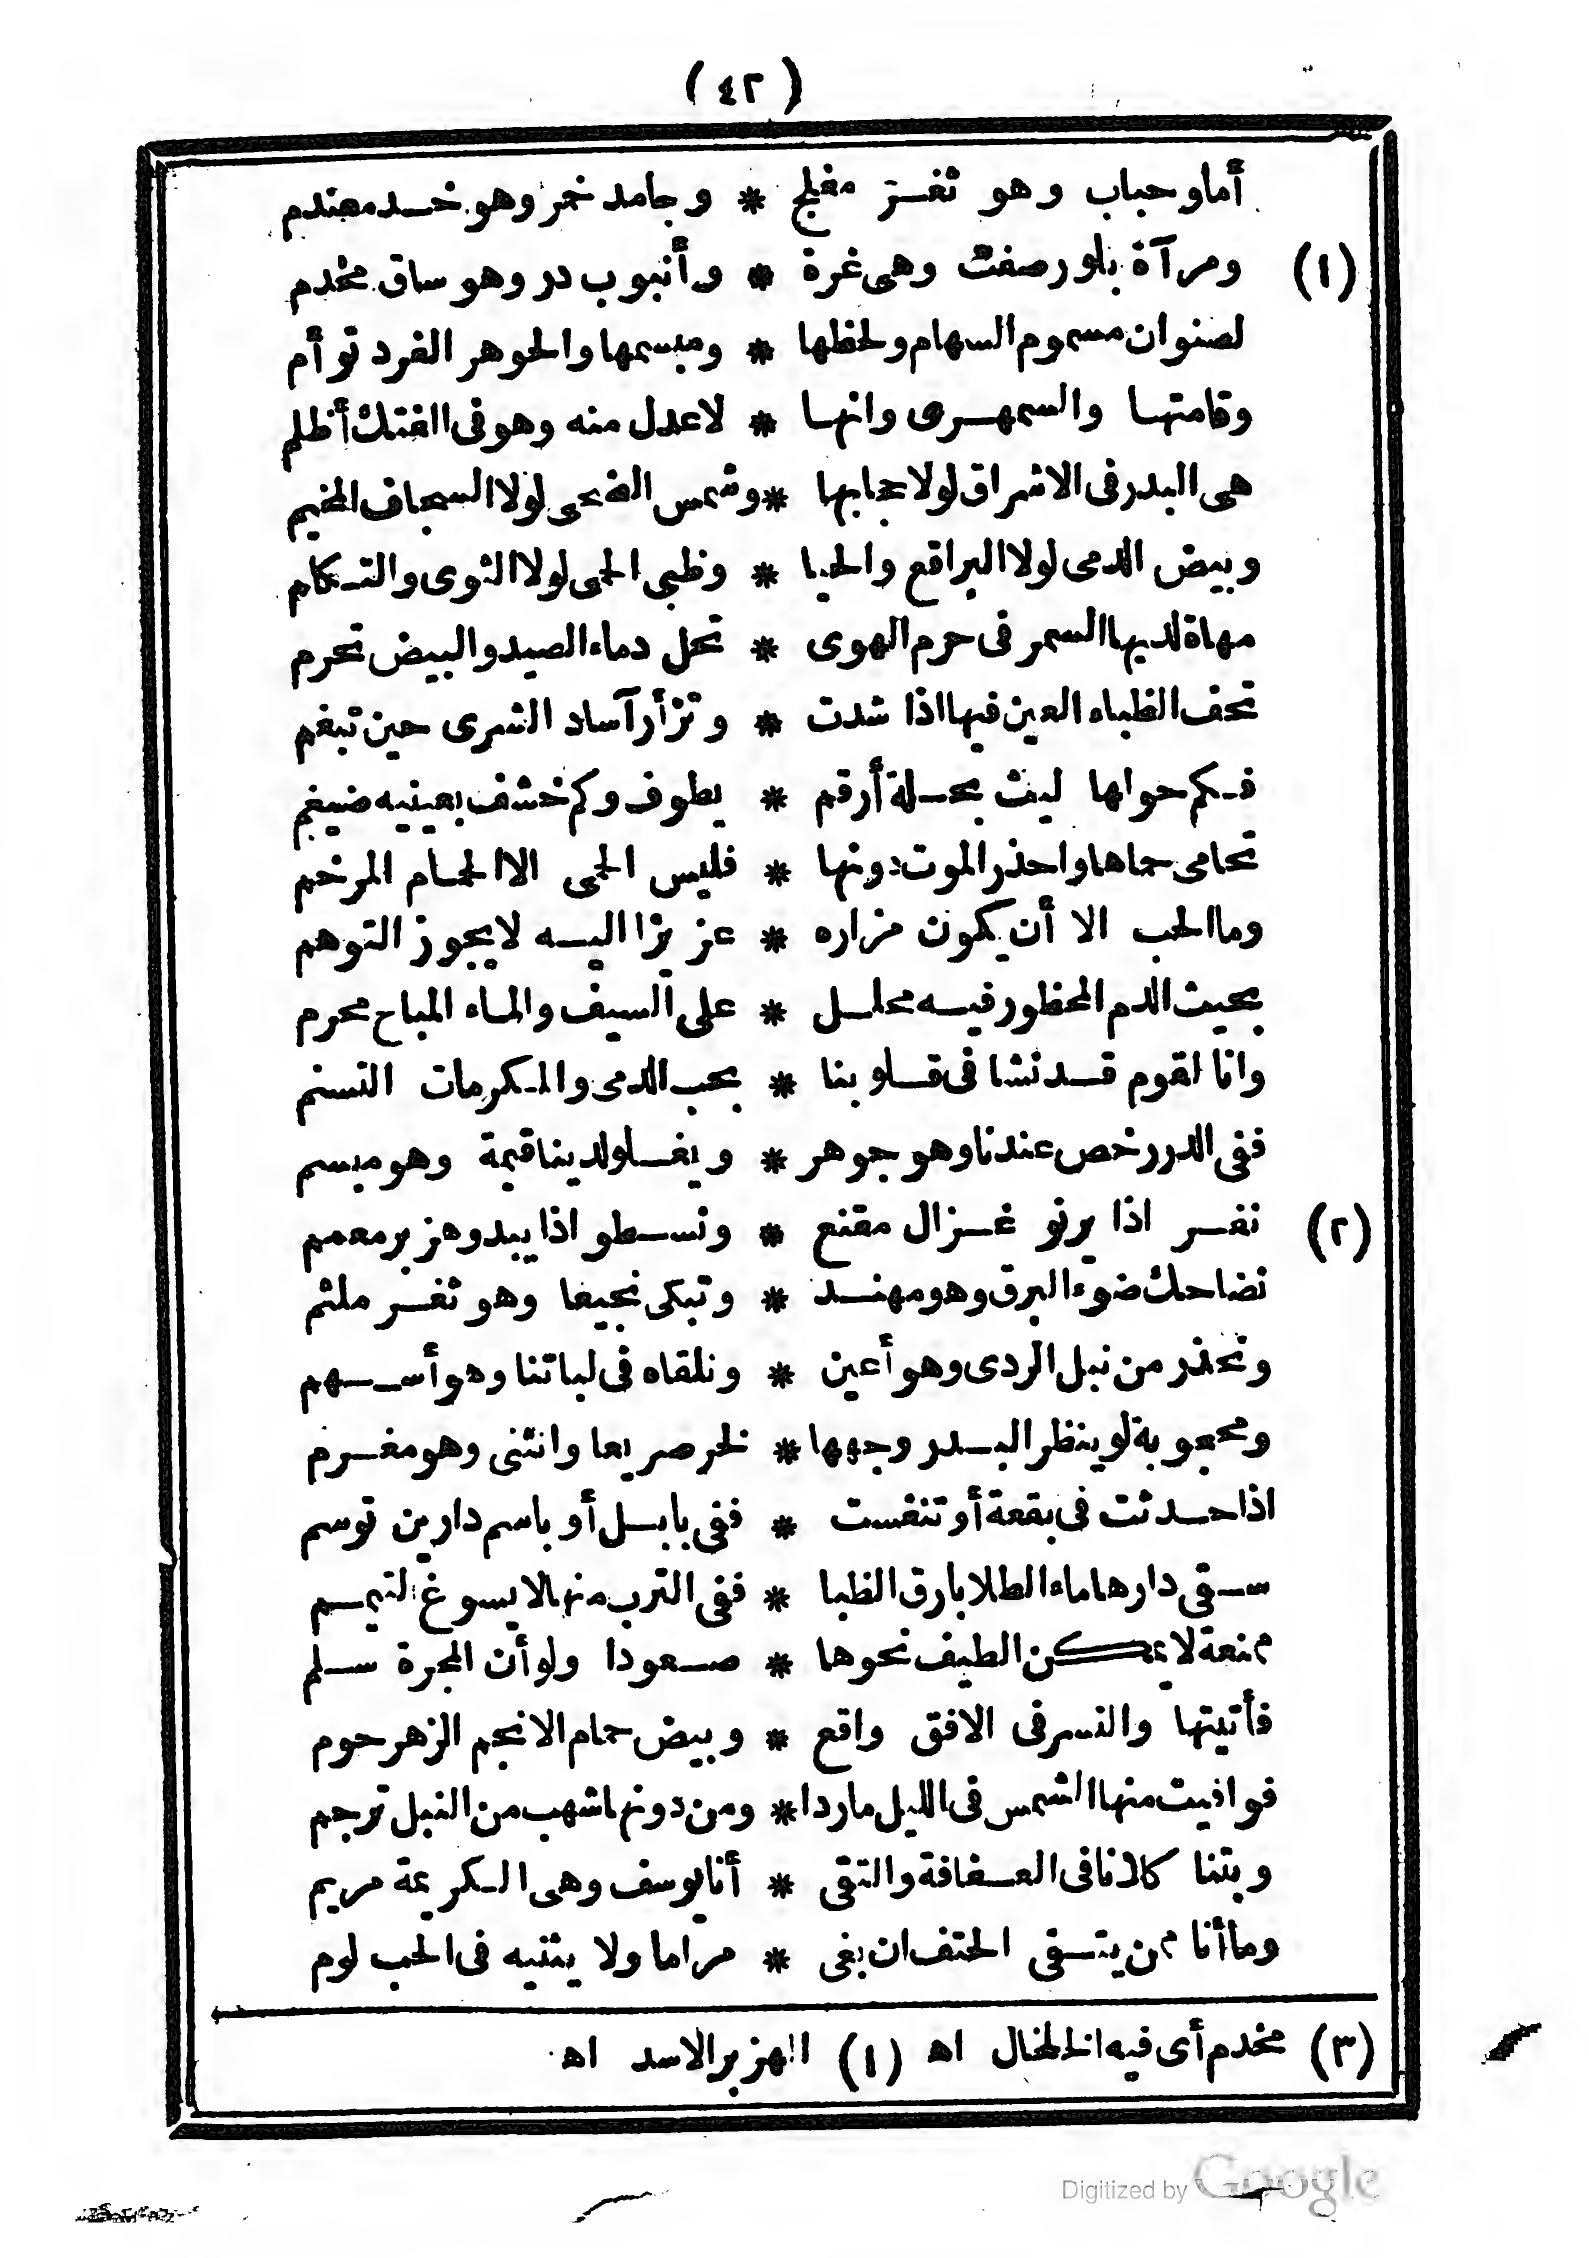 ( ٤٢ )
أما وحباب وهو ثغر مفلج * وجامد خمر وهو خد معندم
(١) ومرآة بلور صفت وهى غرة * وأنبوب در وهو ساق مخدم
لصنوان مسموم السهام ولحظها * ومبسمها والجوهر الفرد توأم
وقامتها والسمهرى وانها * لاعدل منه وهو فى الفتك أظلم
هى البدر فى الاشراق لولا حجابها * وشمس الضحى لولا السجاف المخيم
وبيض الدمى لولا البراقع والحيا * وظبى الحمى لولا الثوى والتكام
مهاة لديها السمر فى حرم الهوى * تحل دماء الصيد والبيض تحرم
تحف الظباء العين فيها اذا شدت * وتزأر آساد الشرى حين تبغم
فكم حولها ليث بحلة أرقم * يطوف وكم خشف بعينيه ضيغم
تحامى حماها واحذر الموت دونها * فليس الحمى الا الحمام المرخم
وما الحب الا أن يكون مزاره * عزيزا اليه لا يجوز التوهم
بحيث الدم المحظور فيه محلل * على السيف والماء المباح محرم
وانا لقوم قد نشا فى قلوبنا * بحب الدمى والمكرمات التسنم
ففى الدر رخص عندنا وهو جوهر * ويغلو لدينا قيمة وهو مبسم
(٢) نفر اذا يرنو غزال مقنع * ونسطو اذا يبدو هزبر معمم
نضاحك ضوء البرق وهو مهند * وتبكى نجيعا وهو ثغر ملثم
ونحذر من نبل الردى وهو أعين * ونلقاه فى لباتنا وهو أسهم
ومحجوبة لو ينظر البدر وجهها * لخر صريعا وانثنى وهو مغرم
اذا حدثت فى بقعة أو تنفست * ففى بابل أو باسم دارين توسم
سقى دارها ماء الطلا بارق الظبا * ففى الترب منها لا يسوغ التيمم
ممنعة لا يمكن الطيف نحوها * صعودا ولو أن المجرة سلم
فأتيتها والنسر فى الافق واقع * وبيض حمام الانجم الزهر حوم
فوافيت منها الشمس فى الليل ماردا * ومن دونها شهب من النبل ترجم
وبتنا كلانا فى العفافة والتقى * أنا يوسف وهى الكريمة مريم
وما أنا ممن يتقى الحتف ان بغى * مراما ولا يثنيه فى الحب لوم
(٣) مخدم أى فيه الخلخال اه (١) الهزبر الاسد اه
Digitized by Google